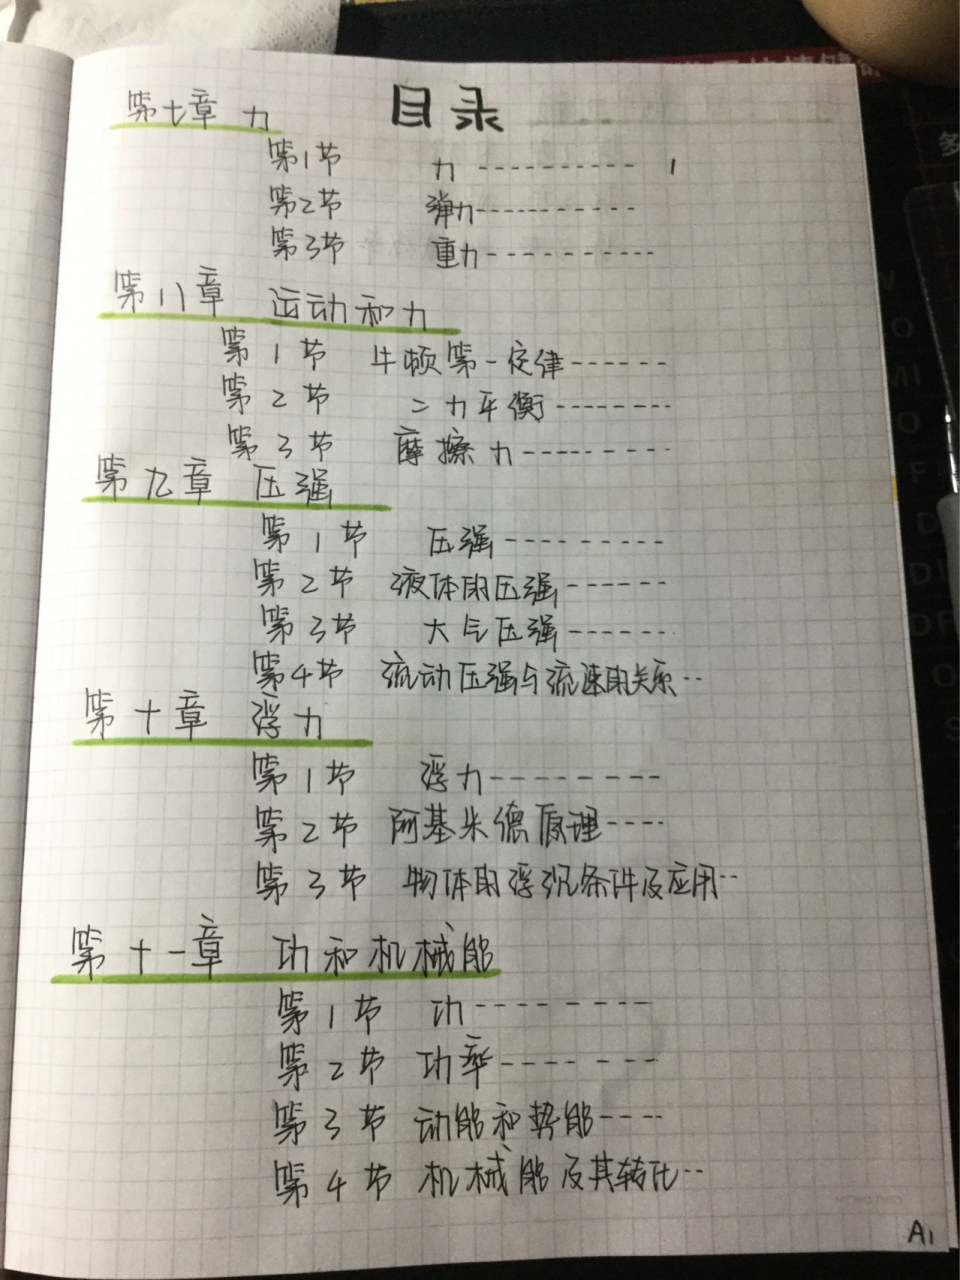 目录
第七章 力
第1节 力 ---------- 1
第2节 弹力----------
第3节 重力-----------
第八章 运动和力
第1节 牛顿第一定律------
第2节 二力平衡-------
第3节 摩擦力---------
第九章 压强
第1节 压强---------
第2节 液体的压强------
第3节 大气压强------
第4节 流动压强与流速的关系--
第十章 浮力
第1节 浮力---------
第2节 阿基米德原理----
第3节 物体的浮沉条件及应用--
第十一章 功和机械能
第1节 功---------
第2节 功率--------
第3节 动能和势能----
第4节 机械能及其转化--
A1